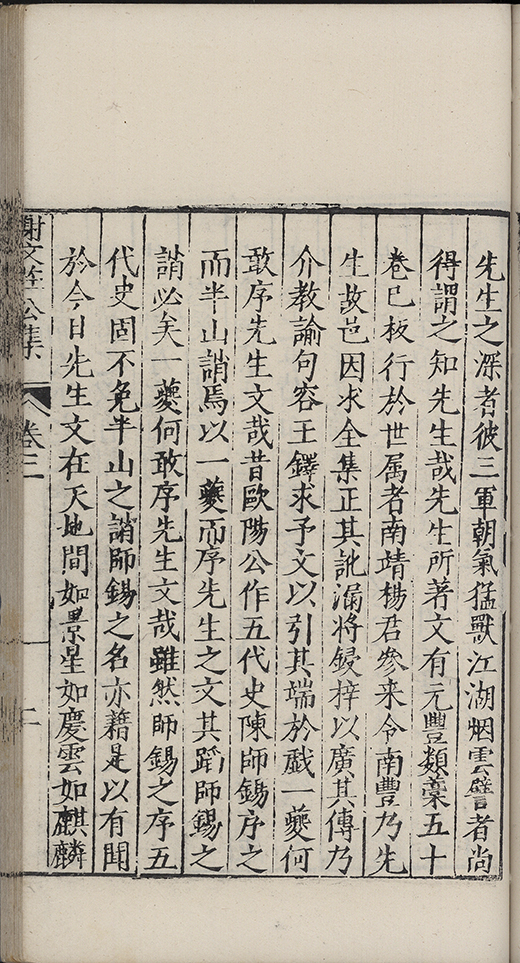 先生之深者彼三軍朝氣猛獸江湖烟雲譬者尚
得謂之知先生哉先生所著文有元豐類藁五十
卷已板行於世属者南靖楊君參来令南豐乃先
生故邑因求全集正其訛漏将鋟梓以廣其傳乃
介教諭句容王鐸求予文以引其端於戯一夔何
敢序先生文哉昔歐陽公作五代史陳師錫序之
而半山誚焉以一夔而序先生之文其蹈師錫之
誚必矣一夔何敢序先生文哉雖然師錫之序五
代史固不免半山之誚師錫之名亦藉是以有聞
於今日先生文在天地間如景星如慶雲如麒麟
謝文莊公集 卷三 二